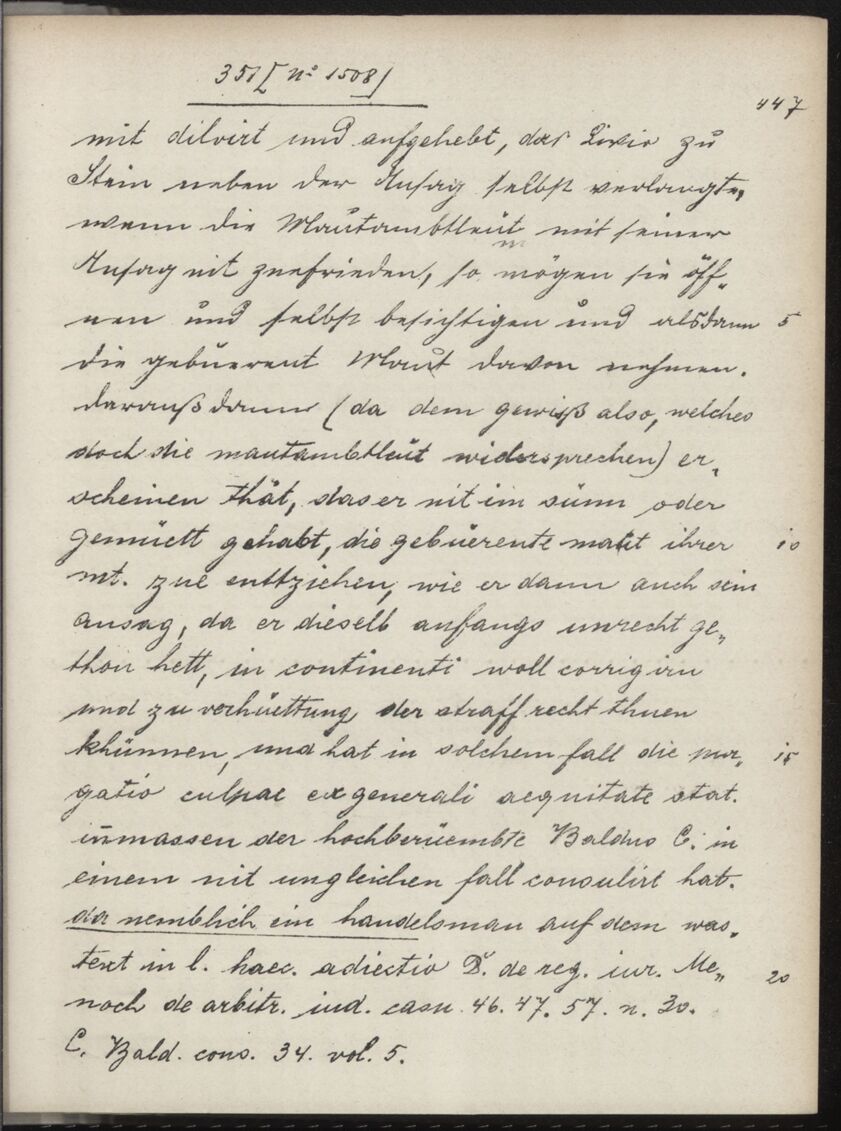 351 [N° 1508]
447
mit dilvirt und aufgehebt, das Livio zu
Stein neben der Ansag selbst verlangte,
wenn die Mautambtleüt mit seiner
Ansag nit zuefrieden, so mögen sie öff„
nen und selbst besichtigen und alsdann 5
die gebüerent Maut davon nehmen.
daraußdann (da dem gewiß also, welches
doch die mautambtleüt widersprechen) er„
scheinen thät, das er nit im sünn oder
gemüett gehabt, die gebüerente maut ihrer 10
mt. zue enttziehen, wie er dann auch sein
ansag, da er dieselb anfangs unrecht ge„
thon hett, in continenti woll corrigirn
und zu verhüettung der straff recht thuen
khünnen, und hat in solchem fall die pur„ 15
gatio culpae ex generali aequitate stat.
inmassen der hochberüembte Baldus C. in
einem nit ungleichen fall consulirt hat.
da nemblich ein handelsman auf dem was„
text in l. haec. adiectio D. de reg. iur. Me„ 20
noch de arbitr. iud. casu 46. 47. 57. n. 30.
C. Bald. cons. 34. vol. 5.